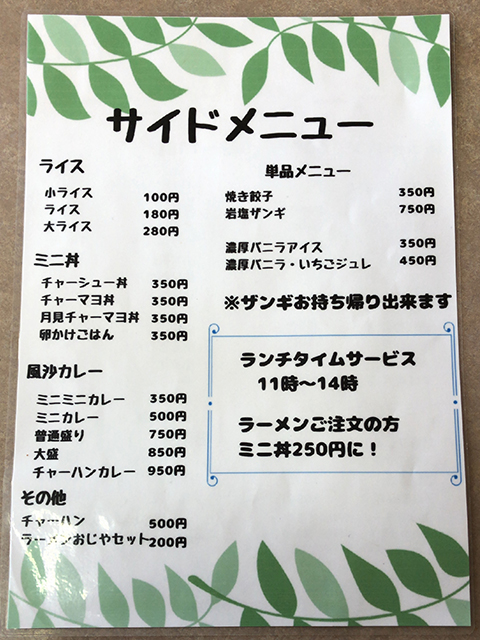 サイドメニュー
ライス
小ライス 100円
ライス 180円
大ライス 280円
ミニ丼
チャーシュー丼 350円
チャーマヨ丼 350円
月見チャーマヨ丼 350円
卵かけごはん 350円
風沙カレー
ミニミニカレー 350円
ミニカレー 500円
普通盛り 750円
大盛 850円
チャーハンカレー 950円
その他
チャーハン 500円
ラーメンおじやセット 200円
単品メニュー
焼き餃子 350円
岩塩ザンギ 750円
濃厚バニラアイス 350円
濃厚バニラ・いちごジュレ 450円
※ザンギお持ち帰り出来ます
ランチタイムサービス
11時～14時
ラーメンご注文の方
ミニ丼250円に！